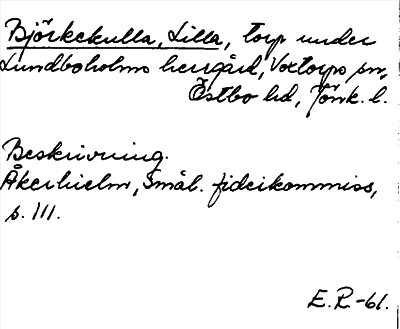 Björkekulla, Lilla, torp under
Lundboholms herrgård, Voxtorps sn,
Östbo hd, Jönk. l.
Beskrivning.
Åkerhielm, Smål. fideikommiss,
s. 111.
E.R-61.